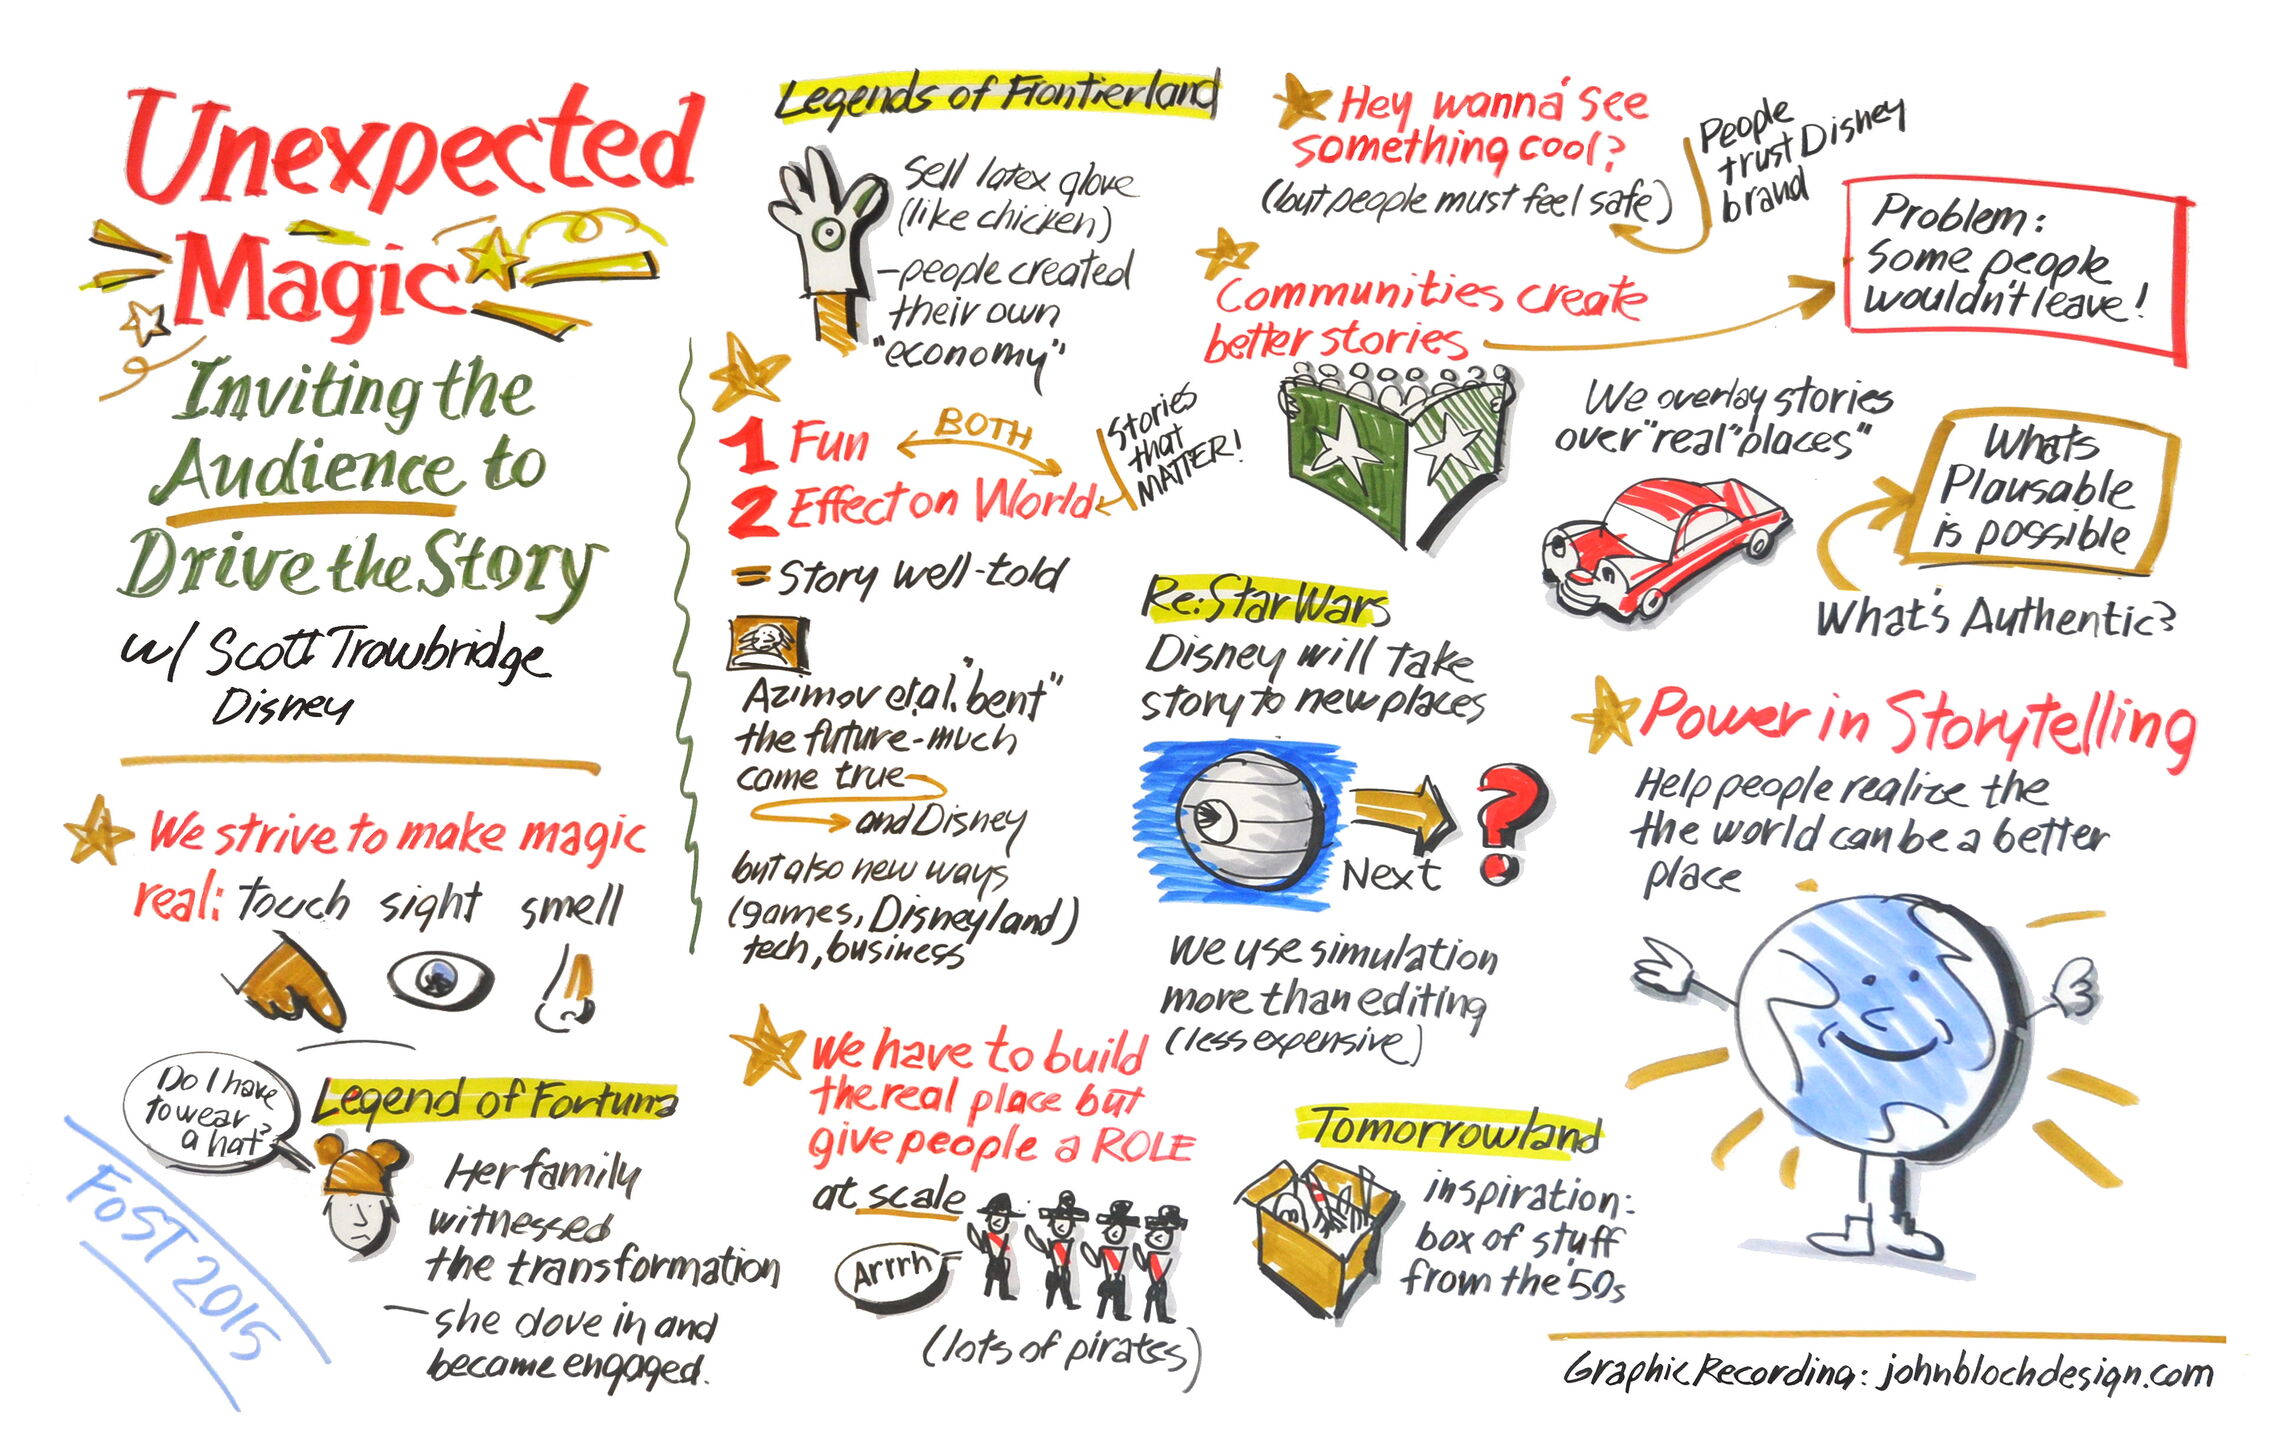 Unexpected
Magic
Inviting the
Audience to
Drive the Story
w/ Scott Trowbridge
Disney
We strive to make magic
real: touch sight smell
Do I have
to wear
a hat?
Legend of Fortuna
Her family
witnessed
the transformation
– she dove in and
became engaged.
FoST 2015
Legends of Frontierland
Sell latex glove
(like chicken)
- people created
their own
"economy"
1 Fun
BOTH
2 Effect on World
Stories
that
MATTER!
= Story well-told
Azimov et.al. "bent"
the future - much
came true
and Disney
but also new ways
(games, Disneyland)
tech, business
We have to build
the real place but
give people a ROLE
at scale
Arrrh
(lots of pirates)
Hey wanna' see
something cool?
(but people must feel safe)
People
trust Disney
brand
Communities create
better stories
Problem:
Some people
wouldn't leave!
We overlay stories
over "real" places"
Whats
Plausable
is possible
What's Authentic?
Re: Star Wars
Disney will take
story to new places
Next
?
We use simulation
more than editing
(less expensive)
Tomorrowland
inspiration:
box of stuff
from the '50s
Power in Storytelling
Help people realize the
the world can be a better
place
Graphic Recording: johnblochdesign.com